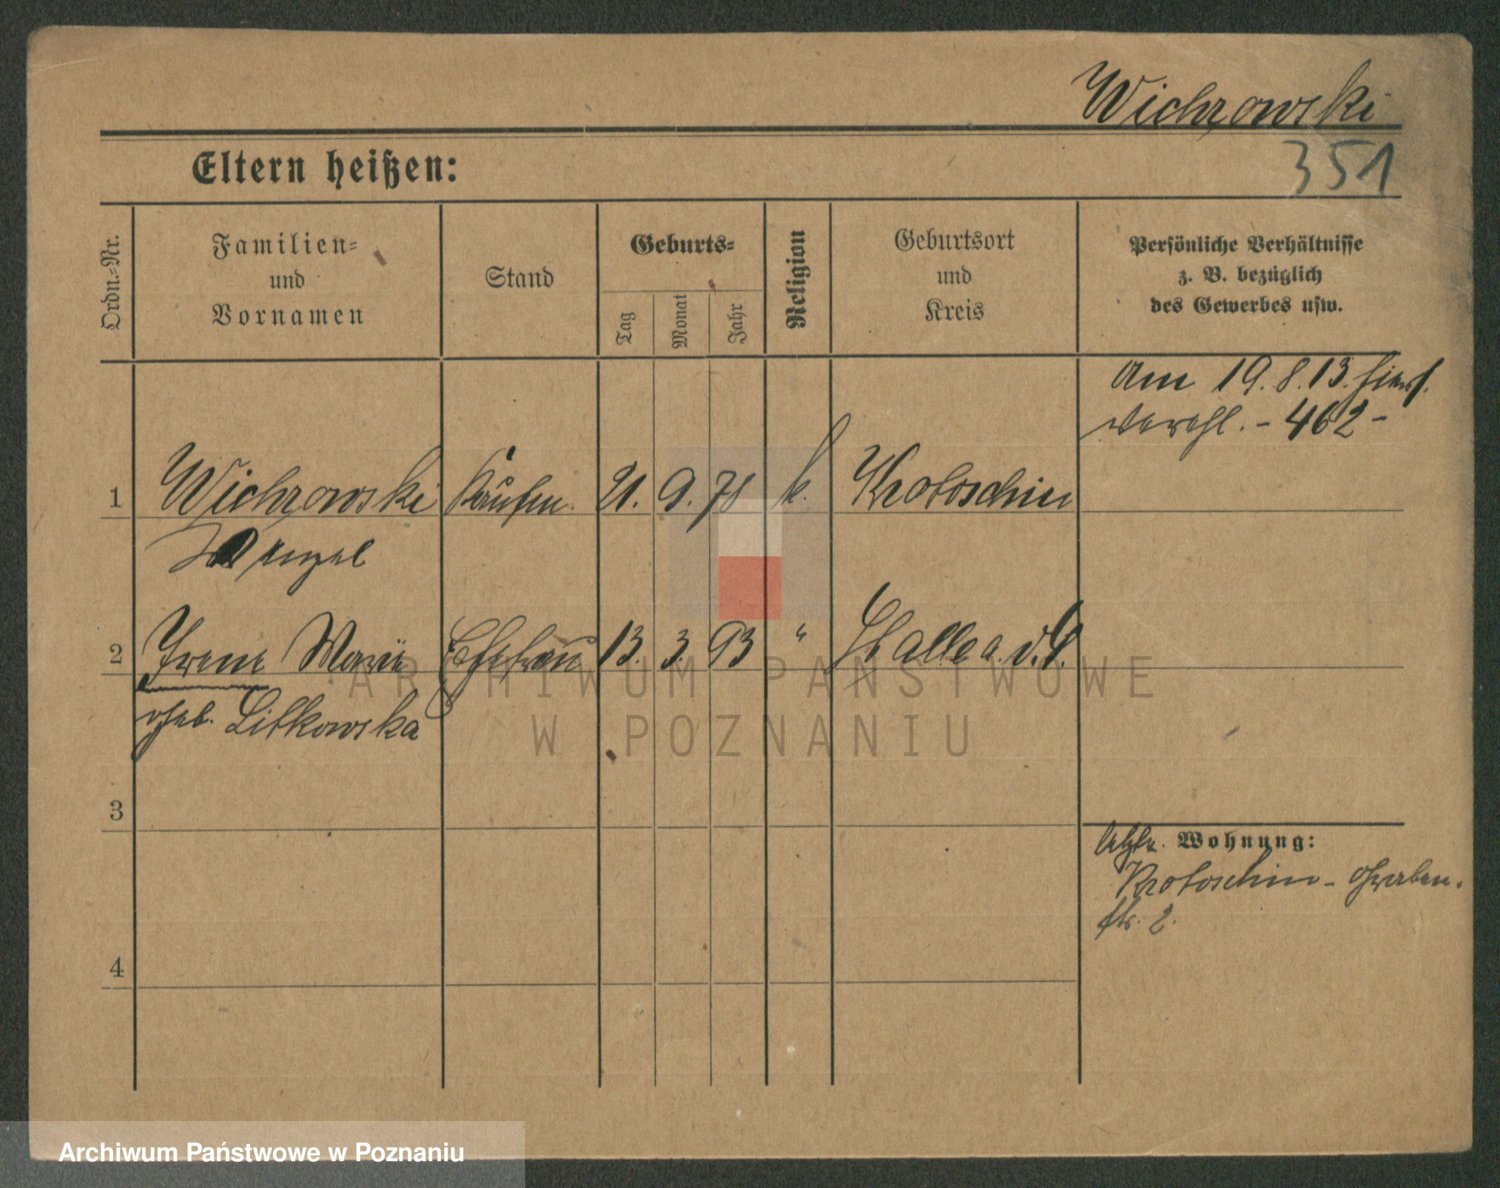 Wichrowski
351
Eltern heißen:
Ordn.-Nr.
Familien-
und
Vornamen
Stand
Geburts-
Tag
Monat
Jahr
Religion
Geburtsort
und
Kreis
Persönliche Verhältnisse
z. B. bezüglich
des Gewerbes usw.
Am 19. 8. 13. hiers.
verehl. - 462 -
1 Wichrowski Kaufm. 21. 9. k. Krotoschin
2 Irene Marie Ehefrau 13. 3. 93 " Halle a. d. S.
geb. Litkowska
3
letzte Wohnung:
Krotoschin - Graben-
str. 2.
4
ARCHIWUM PAŃSTWOWE
W POZNANIU
Archiwum Państwowe w Poznaniu